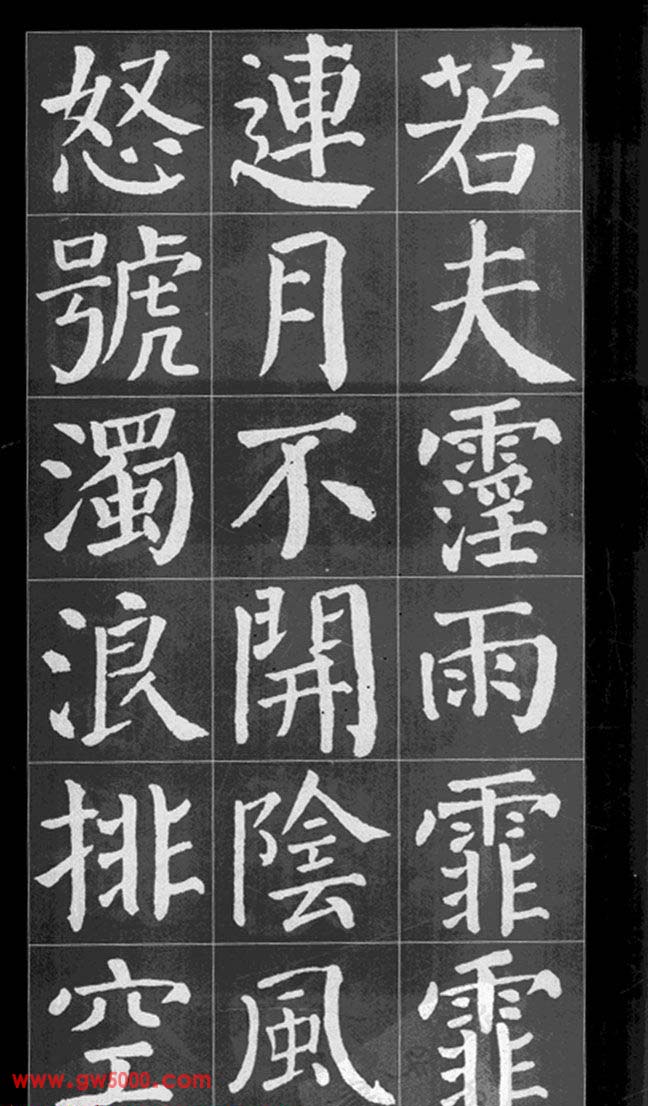 若夫霪雨霏霏
連月不開陰風
怒號濁浪排空
www.gw5000.com